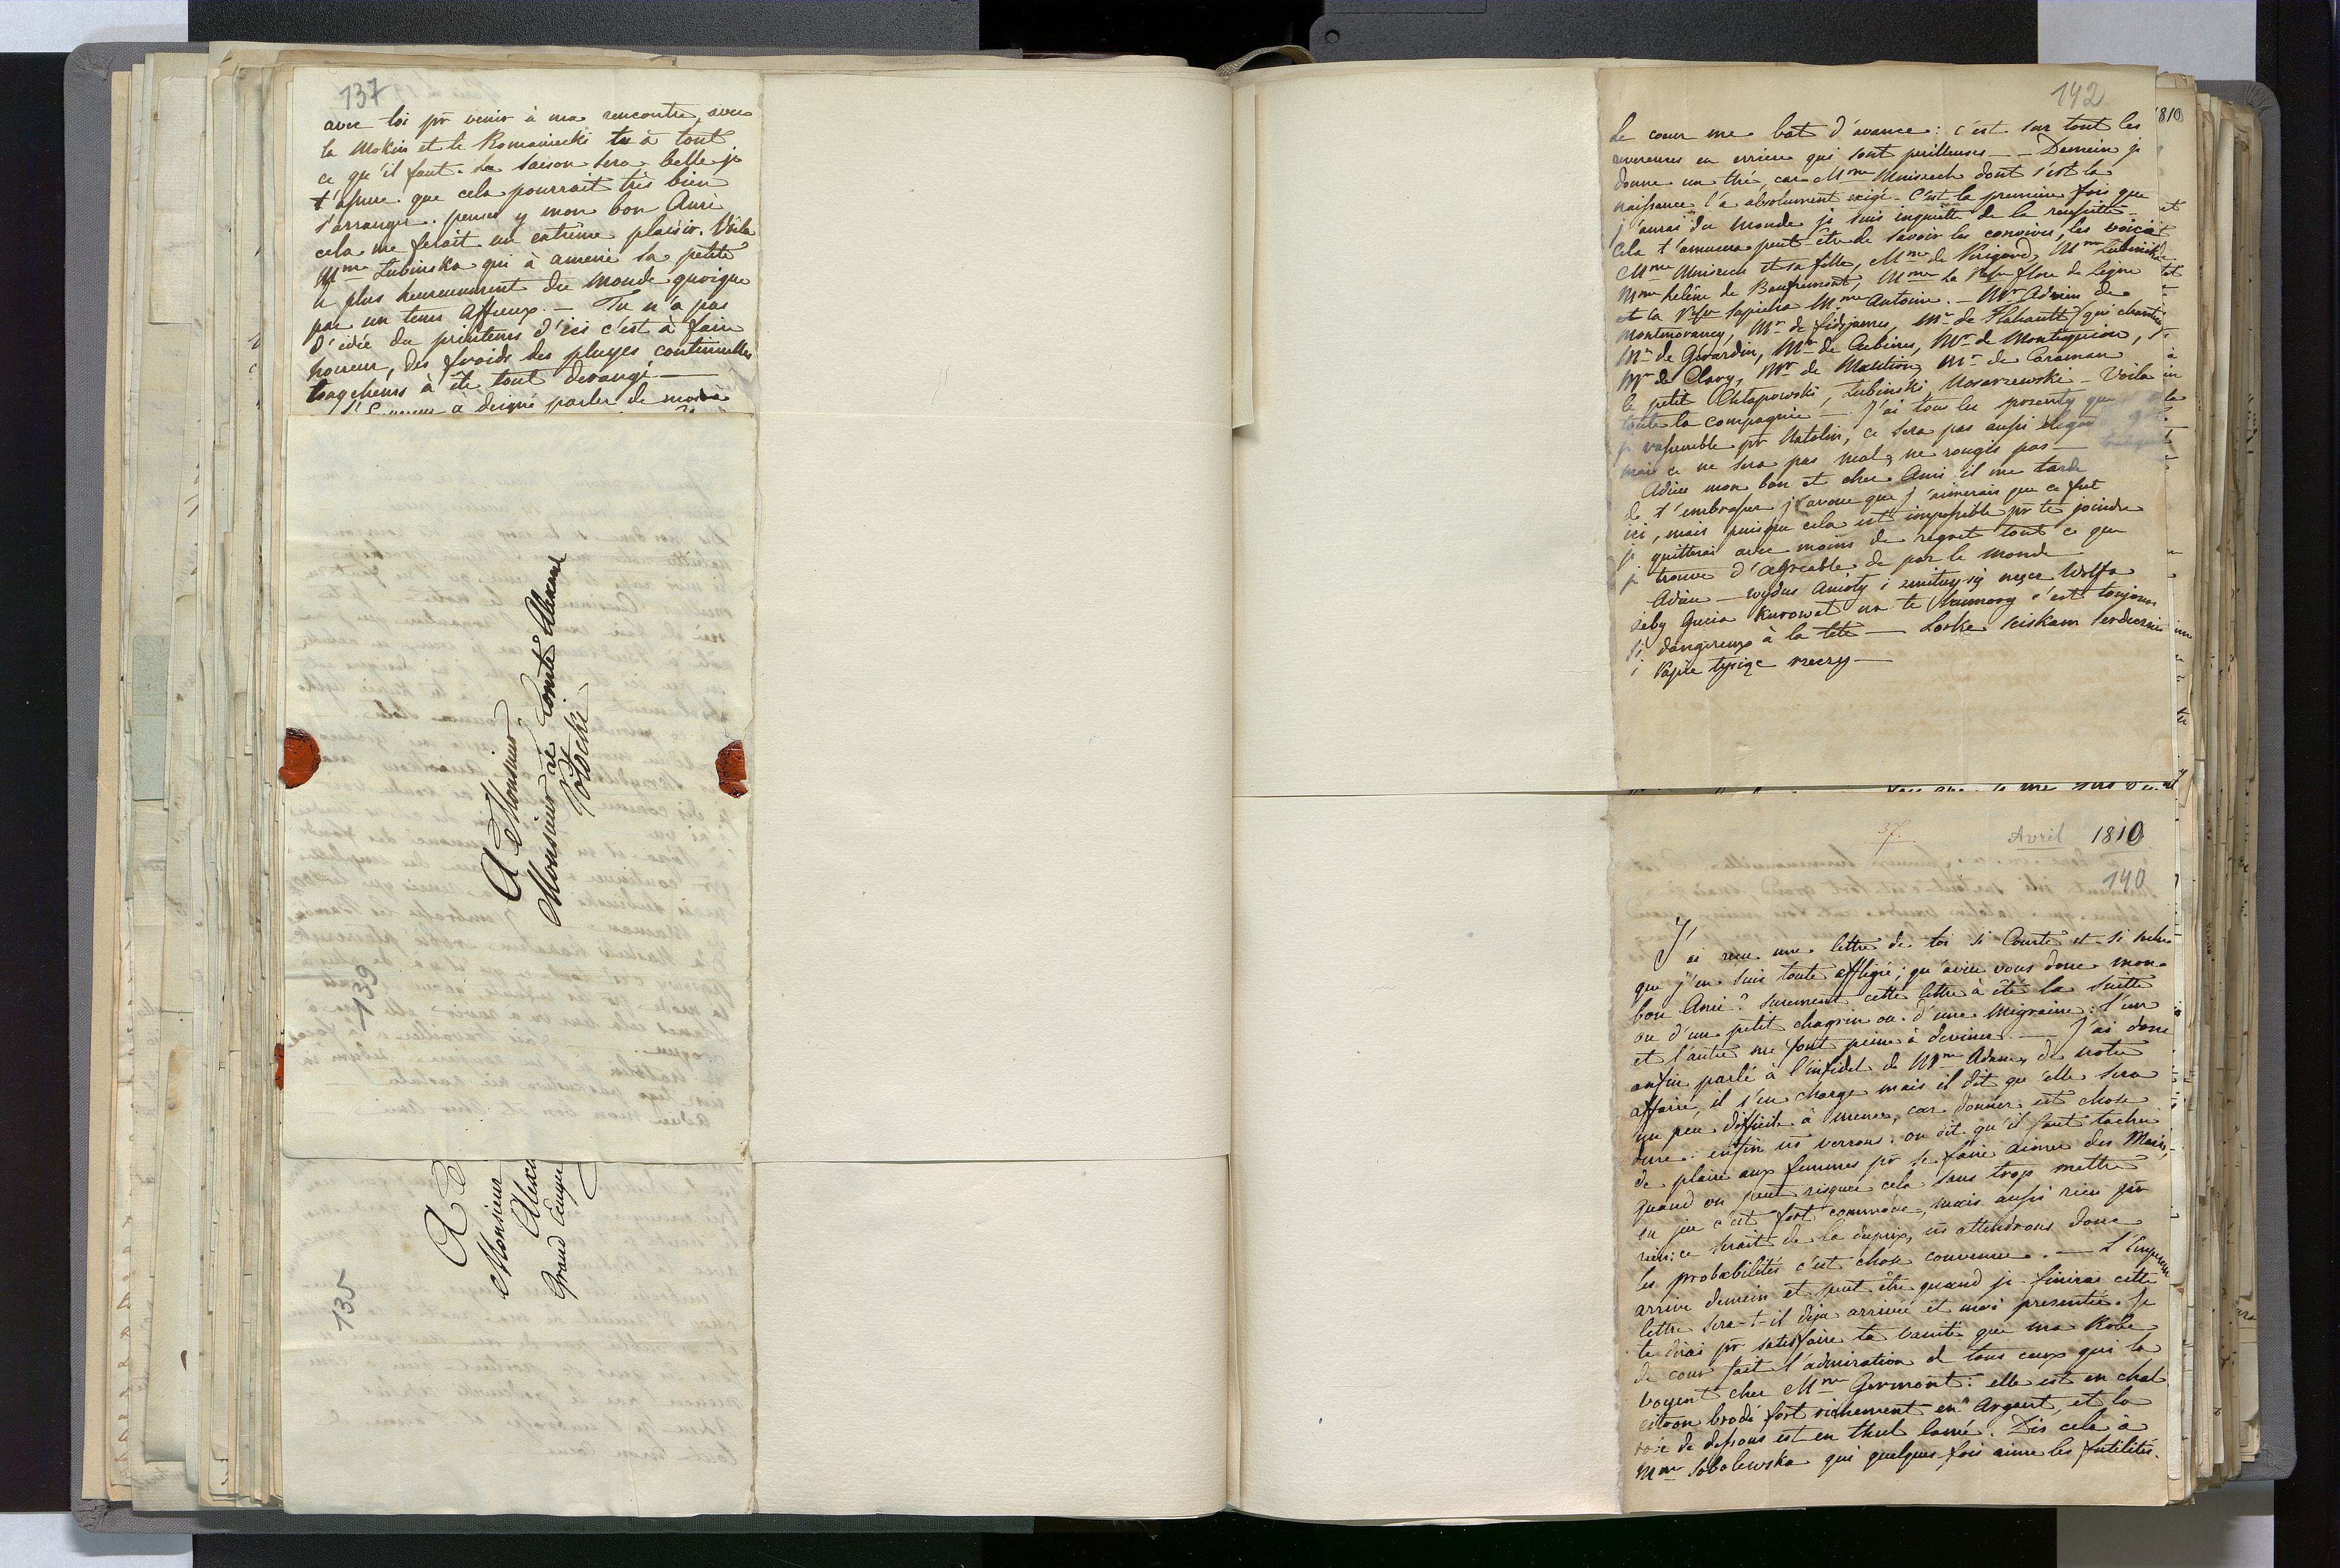 137
avec toi pr venir à ma rencontre, avec
la Mokin et le Romaniecki tu à tout
ce qu'il faut. La saison sera belle je
t'assure que cela pourrait très bien
s'arranger. penses y mon bon Ami
cela me ferait un extrème plaisir. Voila
Mme Lubinska qui à amené sa petite
le plus heureusement du monde quoique
par un tems affreux. — Tu n'a pas
d'idée du printems d'ici c'est à faire
horreur, des froids des pluyes continuelles
Longchems à été tout derangé —
à deigné parler de moi à
A Monsieur
Monsieur le Comte Alexandre
Potocki
139
A
Monsieur
Alex
Grand Ecuyer
135
142
1810
Le coeur me bat d'avance: c'est sur tout les
reverences en arriere qui sont perilleuses — Demein je
donne un thé, car Mme Mniszech dont s'est la
naissance l'a absolument exigé. C'est la premiere fois que
j'aurai du monde je suis inquiette de la reussitte —
Cela t'amusera peut-être de savoir les convives, les voici
Mme Mniszech et sa fille, Mme de Périgord, Mme Lubinska
Mme hélène de Baufremont, Mme la Psse flore de Ligne
et la Psse Sapieha Mme Antoine. — Mr Adrien de
Montmorancy, Mr de fidzjames, Mr de Flahault (qui chantera
Mr de Girardin, Mr de Cubieres, Mr de Montequiou,
Mr de Clary, Mr de Maution, Mr de Caraman
le petit Chlapowski, Lubinski, Kosarzewski — Voila
toute la compagnie — J'ai tous les
je rassemble pr Natolin, ce sera pas aussi
mais ce ne sera pas mal, ne rougis pas —
Adieu mon bon et cher Ami il me tarde
de t'embrasser j'avoue que j'aimerais que ce fut
ici, mais puisque cela est impossible pr te joindre
je quitterai avec moins de regret tout ce que
je trouve d'agréable de par le monde
Adieu —
żeby Gucia
si dangereux à la tête — sciskam serdecznie
i tysiąc rzeczy —
37.
Avril 1810
140
J'ai recu une lettre de toi si Courte et si
que j'en suis toute affligée; qu'aviez vous donc mon
bon Ami? surement cette lettre à été la suitte
ou d'un petit chagrin ou d'une migraine: l'un
et l'autre me font peine à deviner. — J'ai donc
enfin parlé à l'infidel de Mme Adam, de notre
affaire, il s'en charge mais il dit qu'elle sera
un peu difficile à mener, car donner est chose
dure: enfin ns verrons: on dit qu'il faut tacher
de plaire aux femmes pr se faire aimer des Maris,
quand on peut risquer cela sans trop mettre
en jeu c'est fort commode, mais aussi rien pr
rien: ce serait de la duperie, ns attendrons donc
les probabilités c'est chose convenue. — L'Empereur
arrive demein et peut être quand je finirai cette
lettre sera-t-il deja arrivé et moi presentée. Je
te dirai pr satisfaire ta vanité que ma Robe
de cour fait l'admiration de tous ceux qui la
voyent chez Mme Germont: elle est en
citron brodé fort richement en Argent, et la
de dessous est en thul lamé. Dis cela à
Mme Sobolewska qui quelques fois aime les futilités.